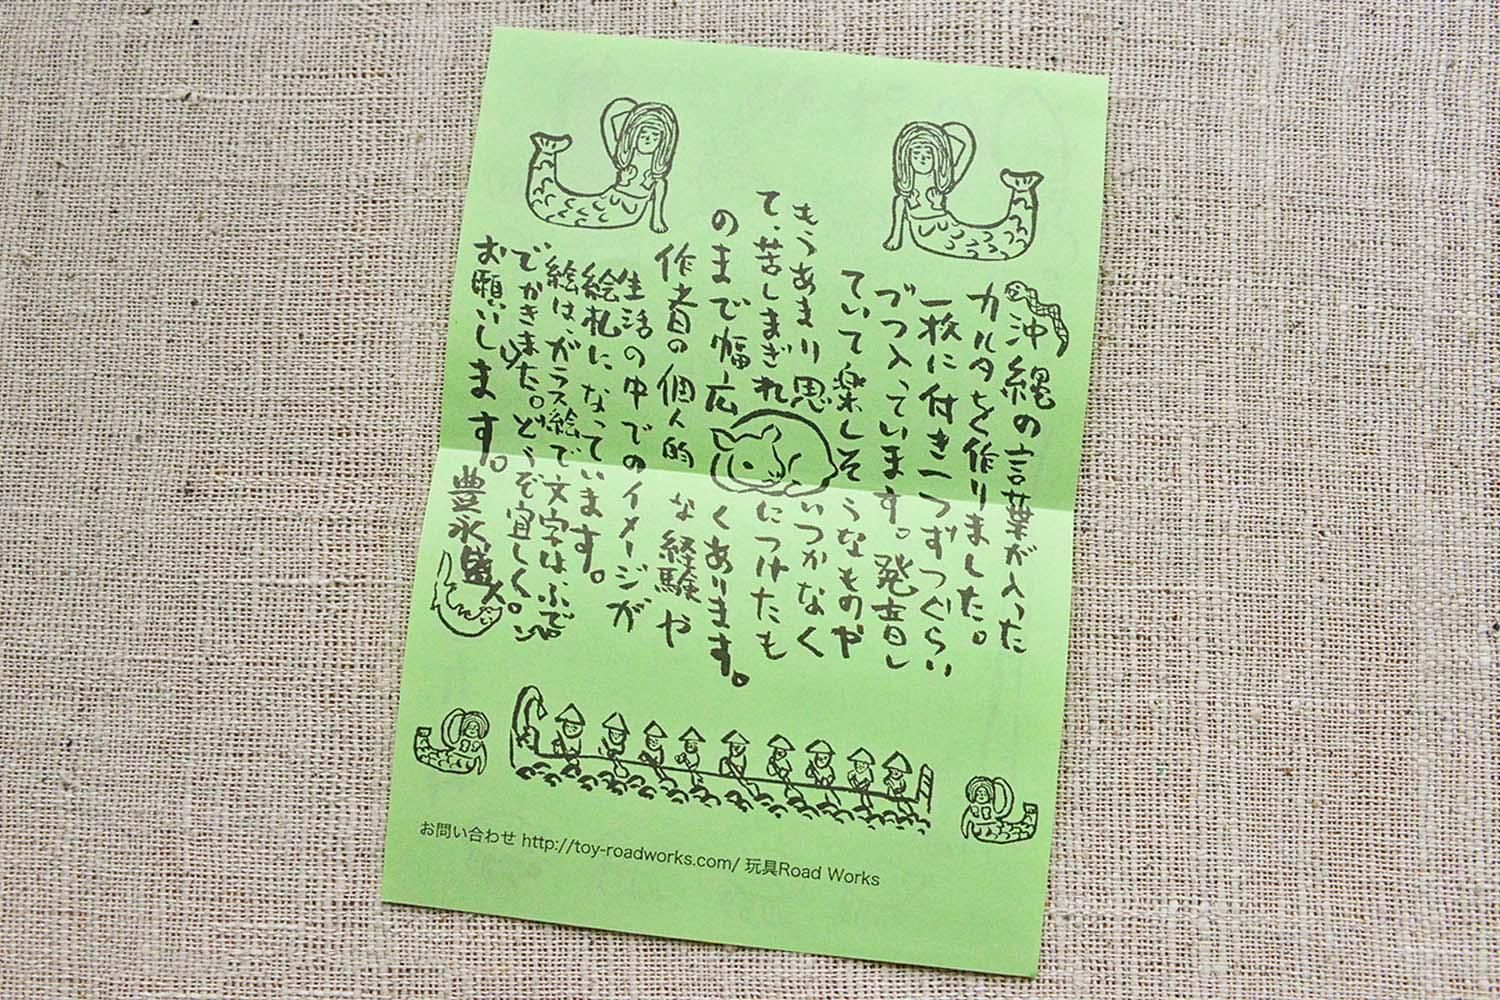 沖縄の言葉が入った
カルタを作りました。
一枚に付き一つずつぐらい
づつ入っています。発音し
ていて楽しそうなものや
もうあまり思いつかなく
て、苦しまぎれにつけたも
のまで幅広くあります。
作者の個人的な経験や
生活の中でのイメージが
絵札になっています。
絵は、ガラス絵で文字はふで
でかきました。どうぞ宜しく。
お願いします。
豊永盛人
お問い合わせ http://toy-roadworks.com/ 玩具Road Works